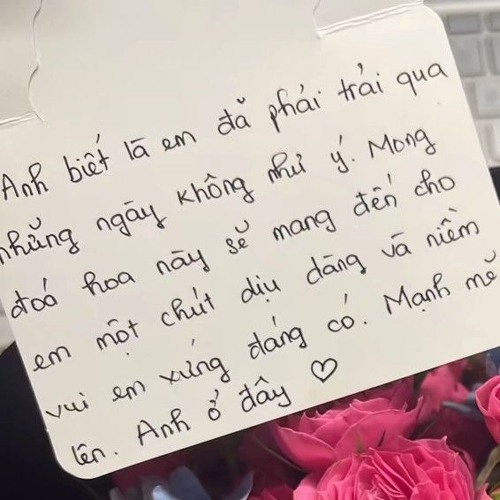 Anh biết là em đã phải trải qua
những ngày không như ý. Mong
đoá hoa này sẽ mang đến cho
em một chút dịu dàng và niềm
vui em xứng đáng có. Mạnh mẽ
lên. Anh ở đây ♡